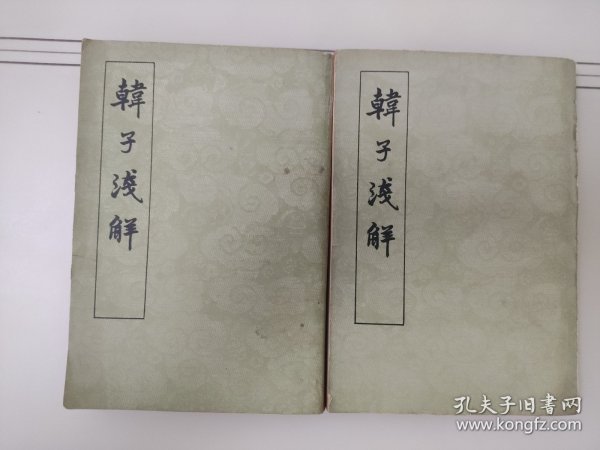 韓子淺解
韓子淺解
孔夫子旧書网
www.kongfz.com